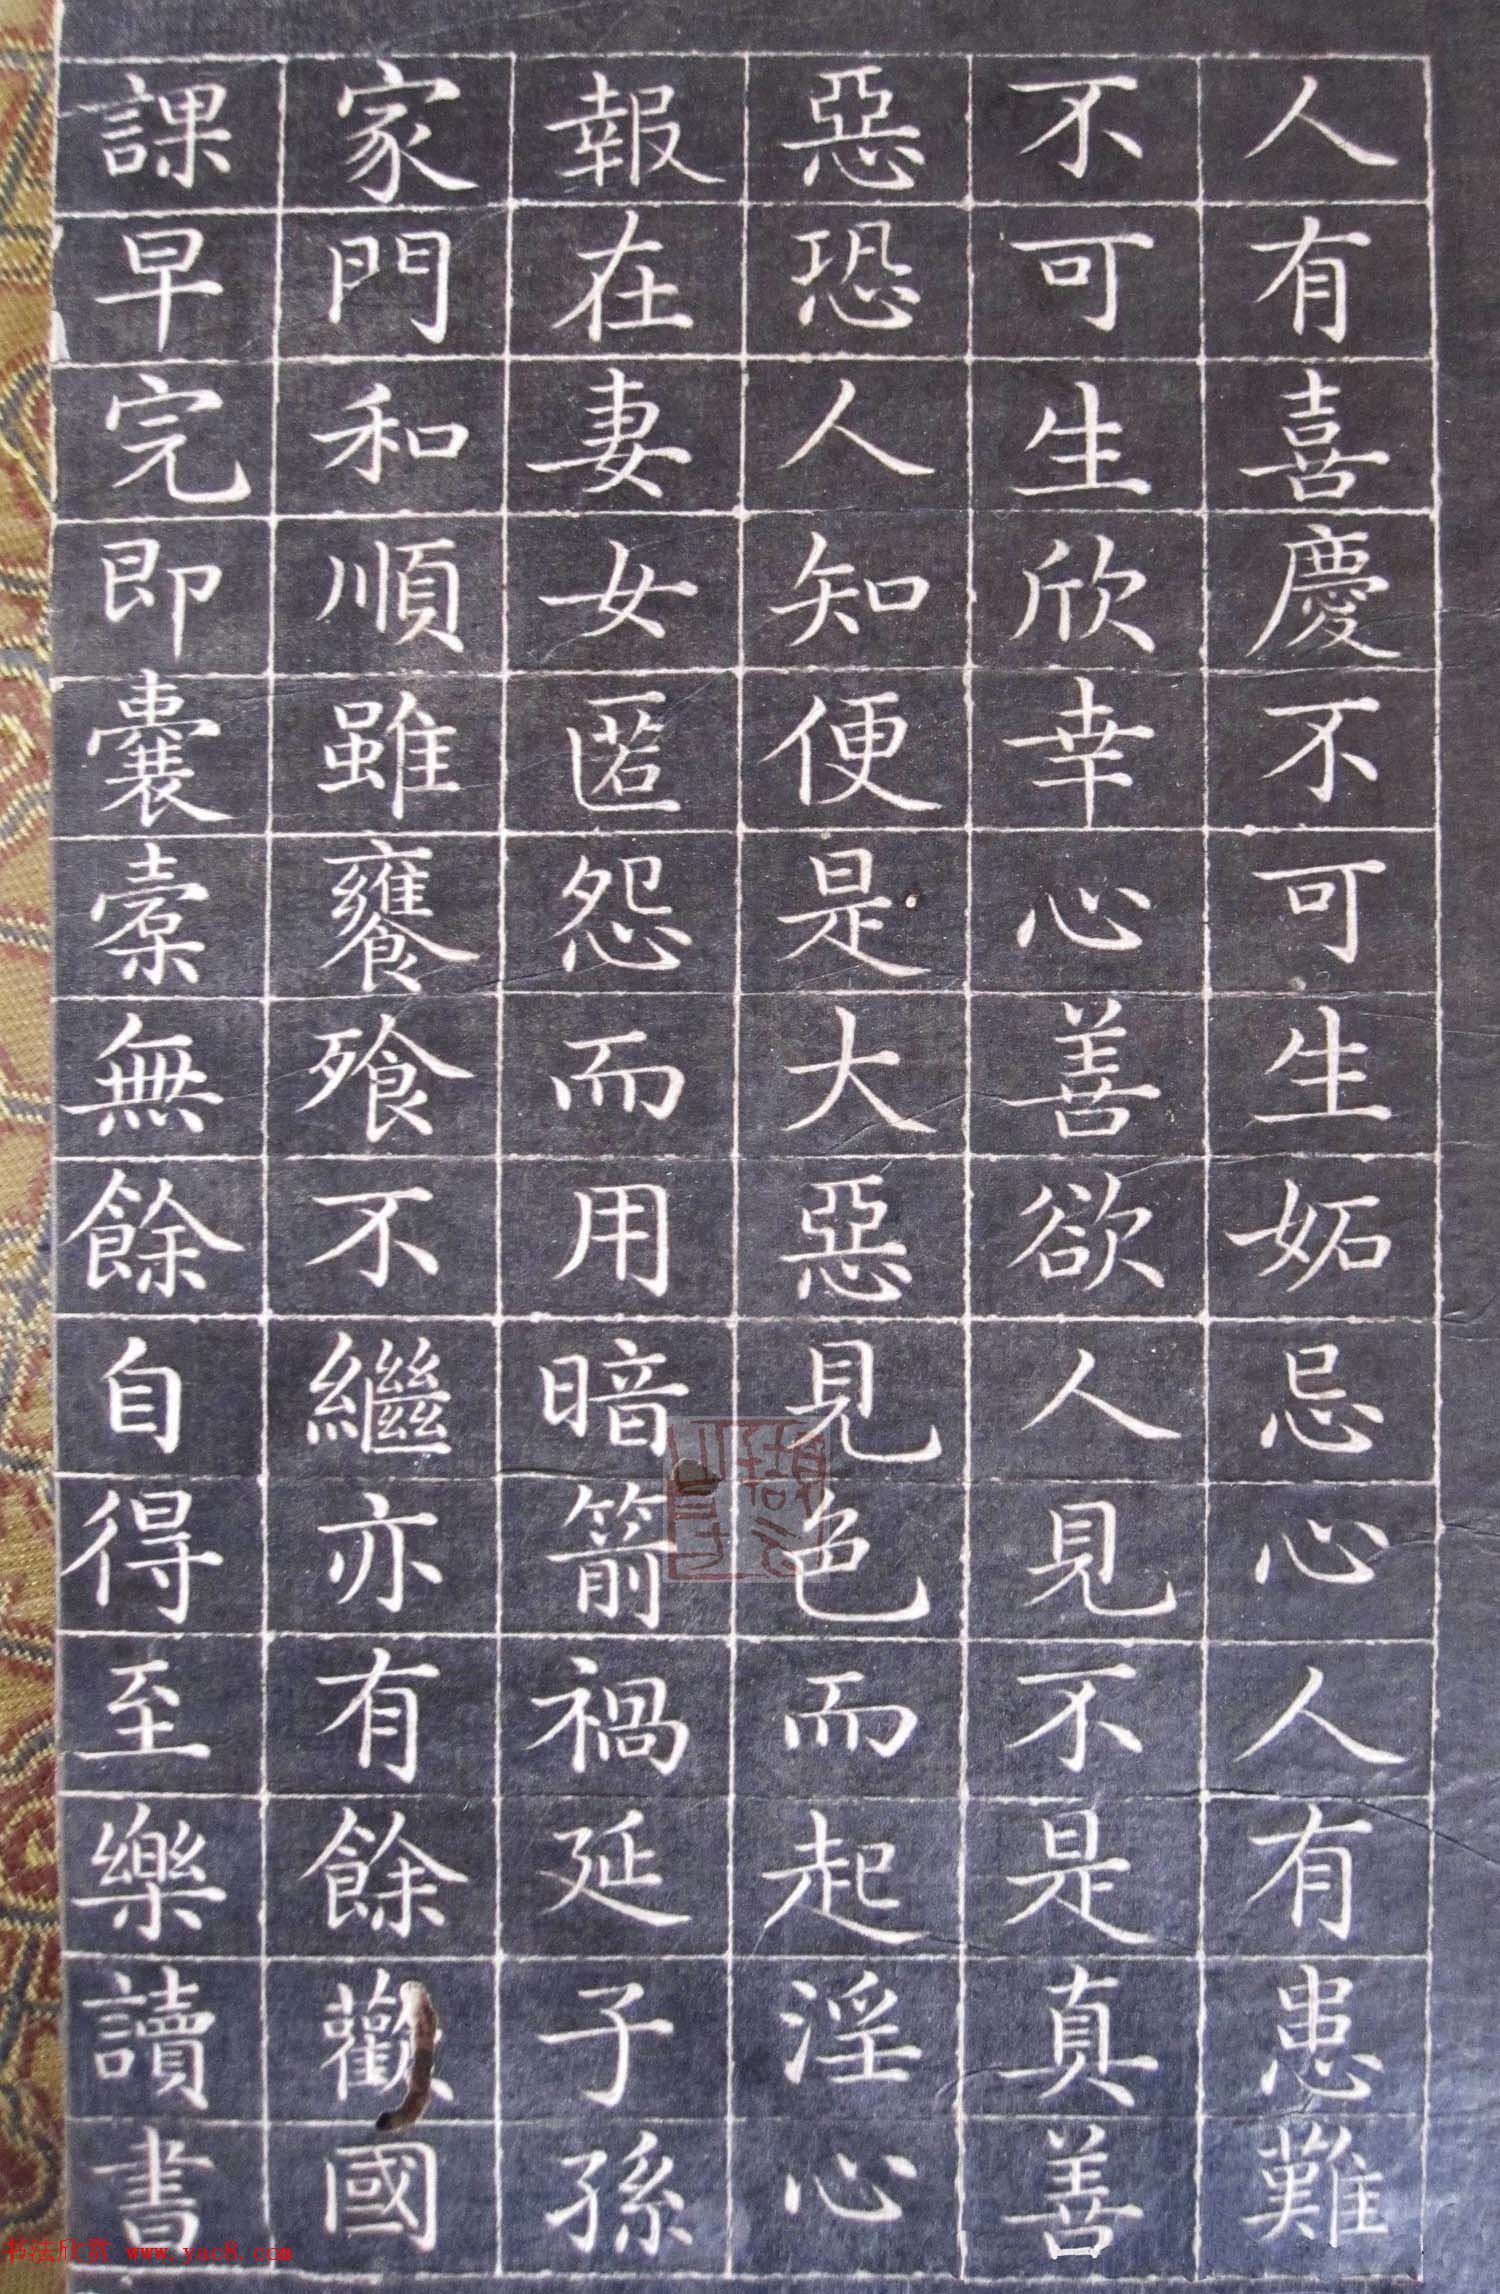 人有喜慶不可生妬忌心人有患難
不可生欣幸心善欲人見不是真善
惡恐人知便是大惡見色而起淫心
報在妻女匿怨而用暗箭禍延子孫
家門和順雖饔飱不繼亦有餘歡國
課早完即囊橐無餘自得至樂讀書
书法欣赏 www.yac8.com